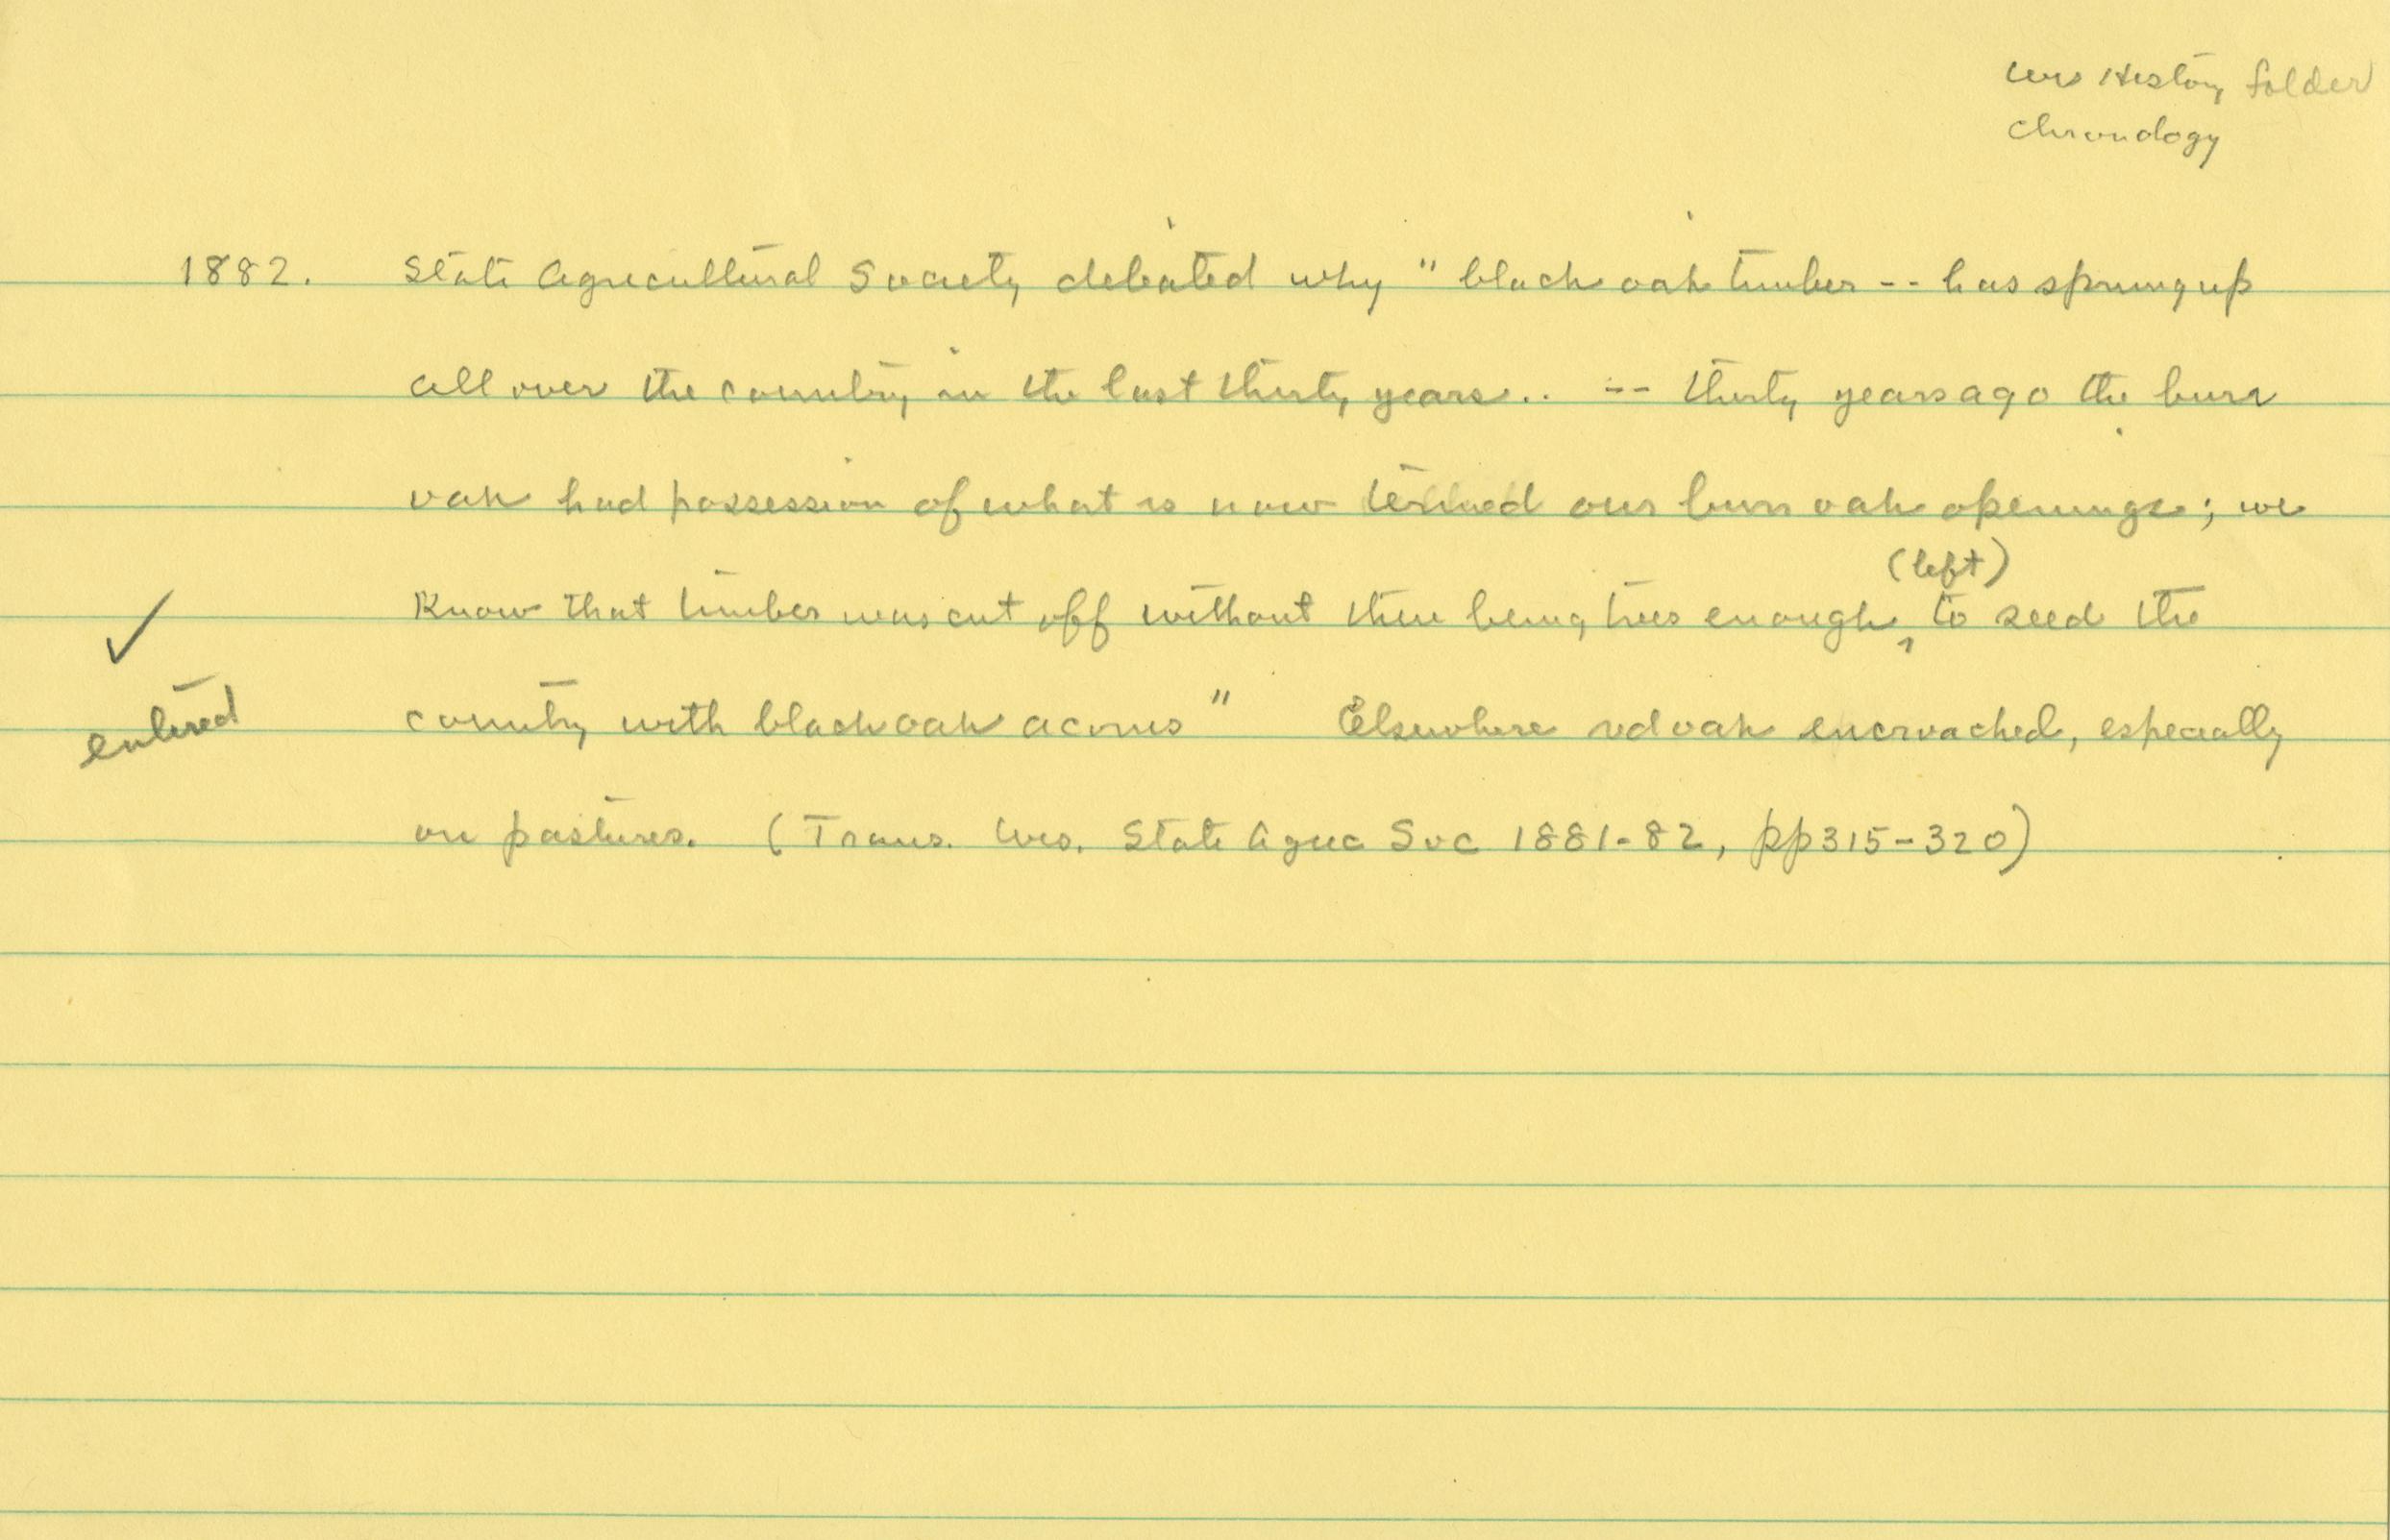 Wis History folder
Chronology
1882. State Agricultural Society debated why "black oak timber -- has sprung up
all over the country in the last thirty years.. -- thirty years ago the burr
oak had possession of what is now termed our burr oak openings; we
(left)
know that timber was cut off without there being trees enough ^ to seed the
✓
entered
country with black oak acorns" Elsewhere red oak encroached, especially
on pastures. (Trans. Wis. State Agric Soc 1881-82, pp315-320)